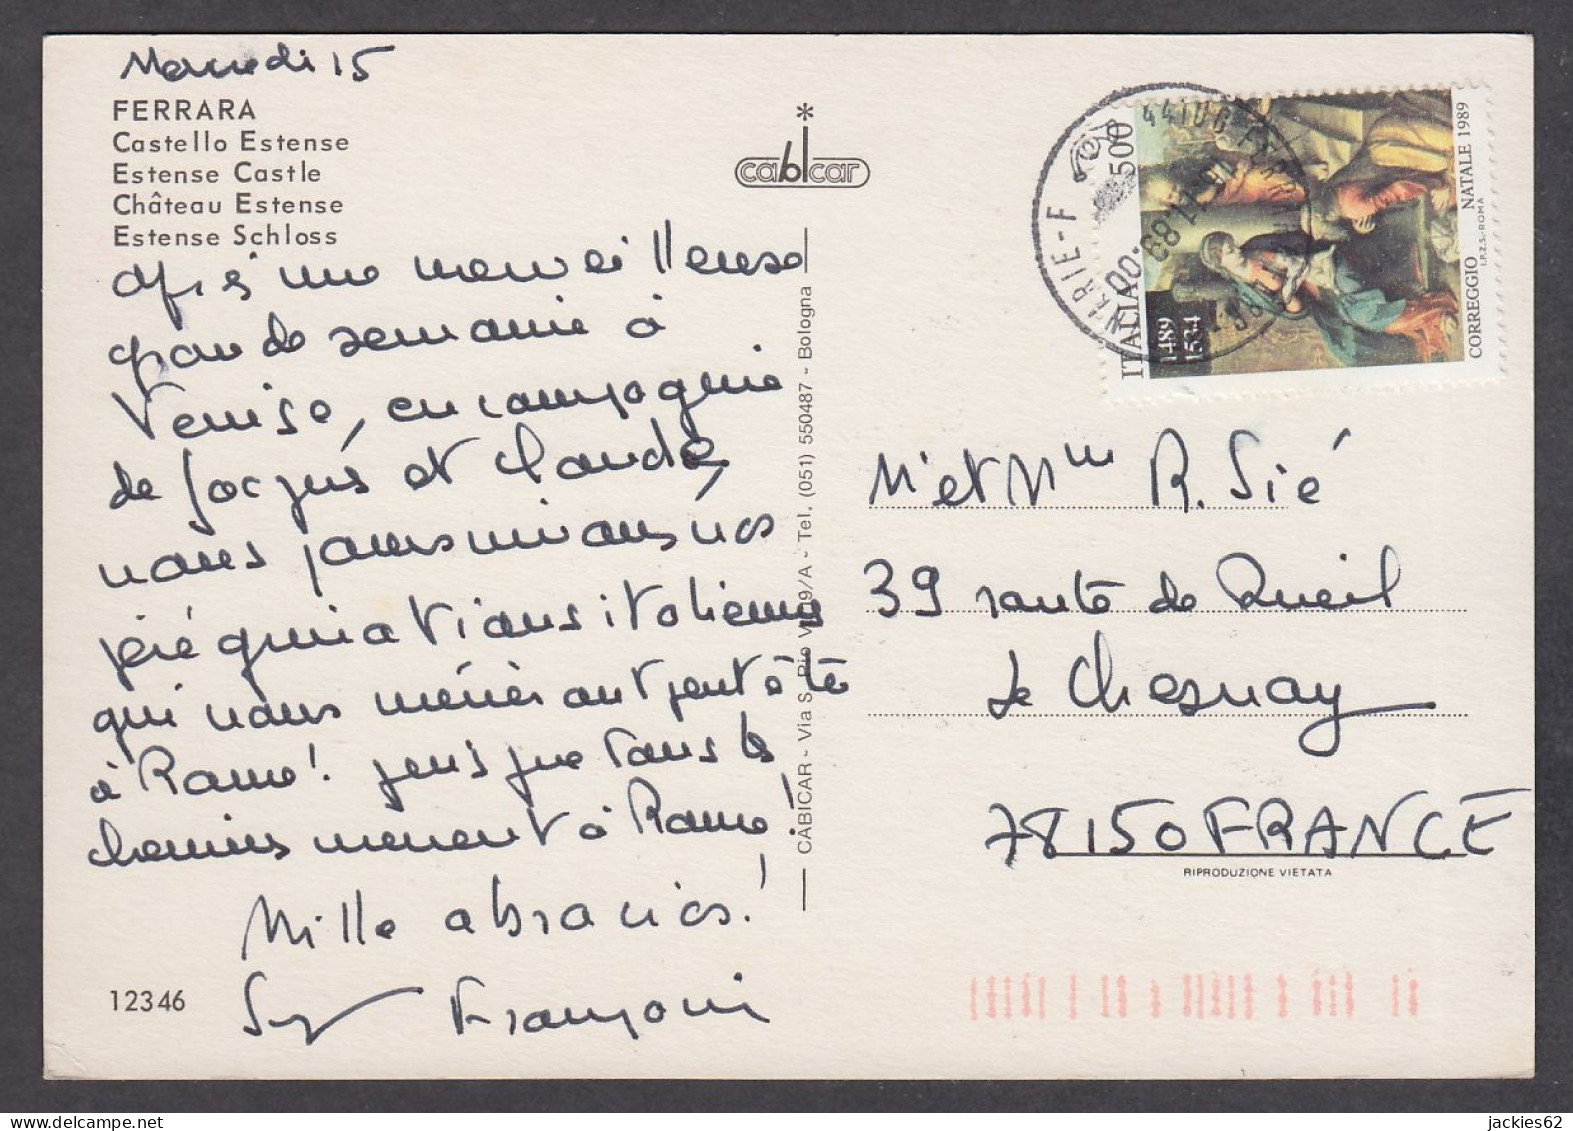 Mercredi 15
FERRARA
Castello Estense
Estense Castle
Château Estense
Estense Schloss
Après une merveilleuse
grande semaine à
Venise, en compagnie
de Jacques et Claude,
nous poursuivons nos
pérégrinations italiennes
qui nous mènerons peut être
à Rome! puisque tous les
chemins mènent à Rome!
Mille abrazios!
Françoise
12346
*
cabicar
CABICAR - Via S. Pio V, 9/A - Tel. (051) 550487 - Bologna
ITALIA 500
1489
1534
CORREGGIO NATALE 1989
I.P.Z.S.-ROMA
Mr et Mme R. Sié
39 route de Rueil
Le Chesnay
78150 FRANCE
RIPRODUZIONE VIETATA
jackies62